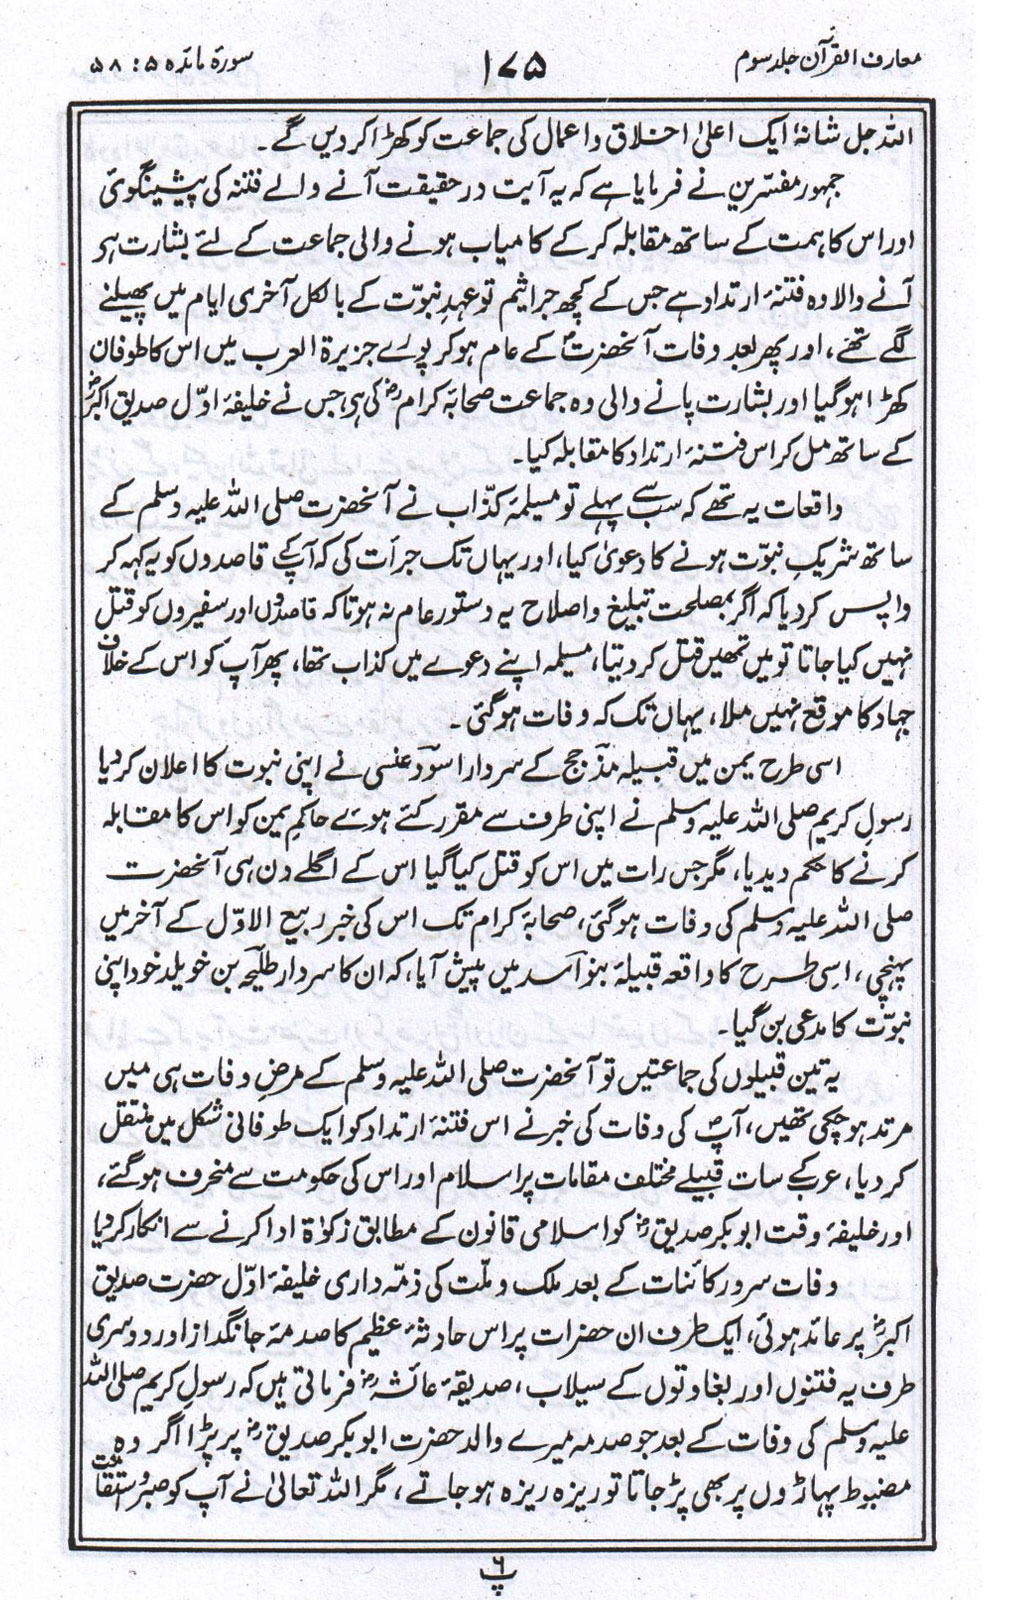 معارف القرآن جلد سوم
۱۷۵
سورۃ مائدہ ۵ : ۵۸
اللہ جل شانہٗ ایک اعلیٰ اخلاق و اعمال کی جماعت کو کھڑا کر دیں گے۔
جمہور مفسّرین نے فرمایا ہے کہ یہ آیت درحقیقت آنے والے فتنہ کی پیشینگوئی
اور اس کا ہمت کے ساتھ مقابلہ کرکے کامیاب ہونے والی جماعت کے لئے بشارت ہو
آنے والا وہ فتنۂ ارتداد ہے جس کے کچھ جراثیم تو عہدِ نبوّت کے بالکل آخری ایام میں پھیلنے
لگے تھے، اور پھر بعد وفات آنحضرتؐ کے عام ہوکر پورے جزیرۃ العرب میں اس کا طوفان
کھڑا ہوگیا اور بشارت پانے والی وہ جماعت صحابۂ کرامؓ کی ہی جس نے خلیفۂ اوّل صدیق اکبرؓ
کے ساتھ مل کر اس فتنۂ ارتداد کا مقابلہ کیا۔
واقعات یہ تھے کہ سب سے پہلے تو مسیلمۂ کذّاب نے آنحضرت صلی اللہ علیہ وسلم کے
ساتھ شریکِ نبوّت ہونے کا دعویٰ کیا، اور یہاں تک جرأت کی کہ آپؐ کے قاصدوں کو یہ کہہ کر
واپس کردیا کہ اگر بمصلحت تبلیغ و اصلاح یہ دستور عام نہ ہوتا کہ قاصدوں اور سفیروں کو قتل
نہیں کیا جاتا تو میں تمھیں قتل کردیتا، مسیلمہ اپنے دعوے میں کذاب تھا، پھر آپؐ کو اس کے خلاف
جہاد کا موقع نہیں ملا، یہاں تک کہ وفات ہوگئی۔
اسی طرح یمن میں قبیلہ مذحج کے سردار اسود عنسی نے اپنی نبوت کا اعلان کردیا
رسولِ کریم صلی اللہ علیہ وسلم نے اپنی طرف سے مقرر کئے ہوئے حاکمِ یمن کو اس کا مقابلہ
کرنے کا حکم دیدیا، مگر جس رات میں اس کو قتل کیا گیا اس کے اگلے دن ہی آنحضرت
صلی اللہ علیہ وسلم کی وفات ہوگئی، صحابۂ کرام تک اس کی خبر ربیع الاوّل کے آخر میں
پہنچی، اسی طرح کا واقعہ قبیلۂ بنو اسد میں پیش آیا، کہ ان کا سردار طلیحہ بن خویلد خود اپنی
نبوّت کا مدعی بن گیا۔
یہ تین قبیلوں کی جماعتیں تو آنحضرت صلی اللہ علیہ وسلم کے مرضِ وفات ہی میں
مرتد ہوچکی تھیں، آپؐ کی وفات کی خبر نے اس فتنۂ ارتداد کو ایک طوفانی شکل میں منتقل
کردیا، عرب کے سات قبیلے مختلف مقامات پر اسلام اور اس کی حکومت سے منحرف ہوگئے،
اور خلیفۂ وقت ابوبکر صدیقؓ کو اسلامی قانون کے مطابق زکوٰۃ ادا کرنے سے انکار کردیا
وفات سرور کائنات کے بعد ملک و ملّت کی ذمّہ داری خلیفۂ اوّل حضرت صدیق
اکبرؓ پر عائد ہوئی، ایک طرف ان حضرات پر اس حادثۂ عظیم کا صدمۂ جانگداز اور دوسری
طرف یہ فتنوں اور بغاوتوں کے سیلاب، صدیقۂ عائشہؓ فرماتی ہیں کہ رسولِ کریم صلی اللہ
علیہ وسلم کی وفات کے بعد جو صدمہ میرے والد حضرت ابوبکر صدیقؓ پر پڑا اگر وہ
مضبوط پہاڑوں پر بھی پڑجاتا تو ریزہ ریزہ ہوجاتے، مگر اللہ تعالیٰ نے آپ کو صبر و استقامت
پ ۶